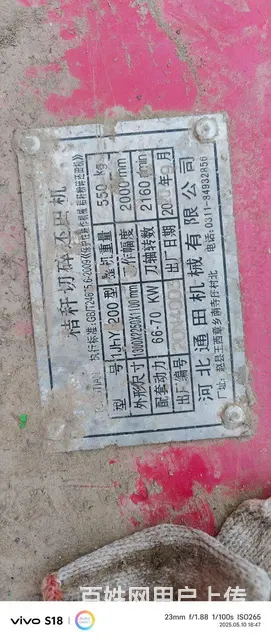 秸秆切碎还田机
执行标准:GB/T24675.6-2009《保护性耕作机械 秸秆粉碎还田机》
型 号 1JHY 200型 整机重量 550 kg
外形尺寸 1300X2250X1100mm 工作幅度 2000mm
配套动力 66-70 KW 刀轴转数 2160r/min
出厂编号 出厂日期 20 年 月
河北通田机械有限公司
厂址:赵县王西章乡南寺庄村北 电话:0311-84932856
百姓网用户上传
vivo S18
23mm f/1.88 1/100s ISO265
2025.05.10 16:47